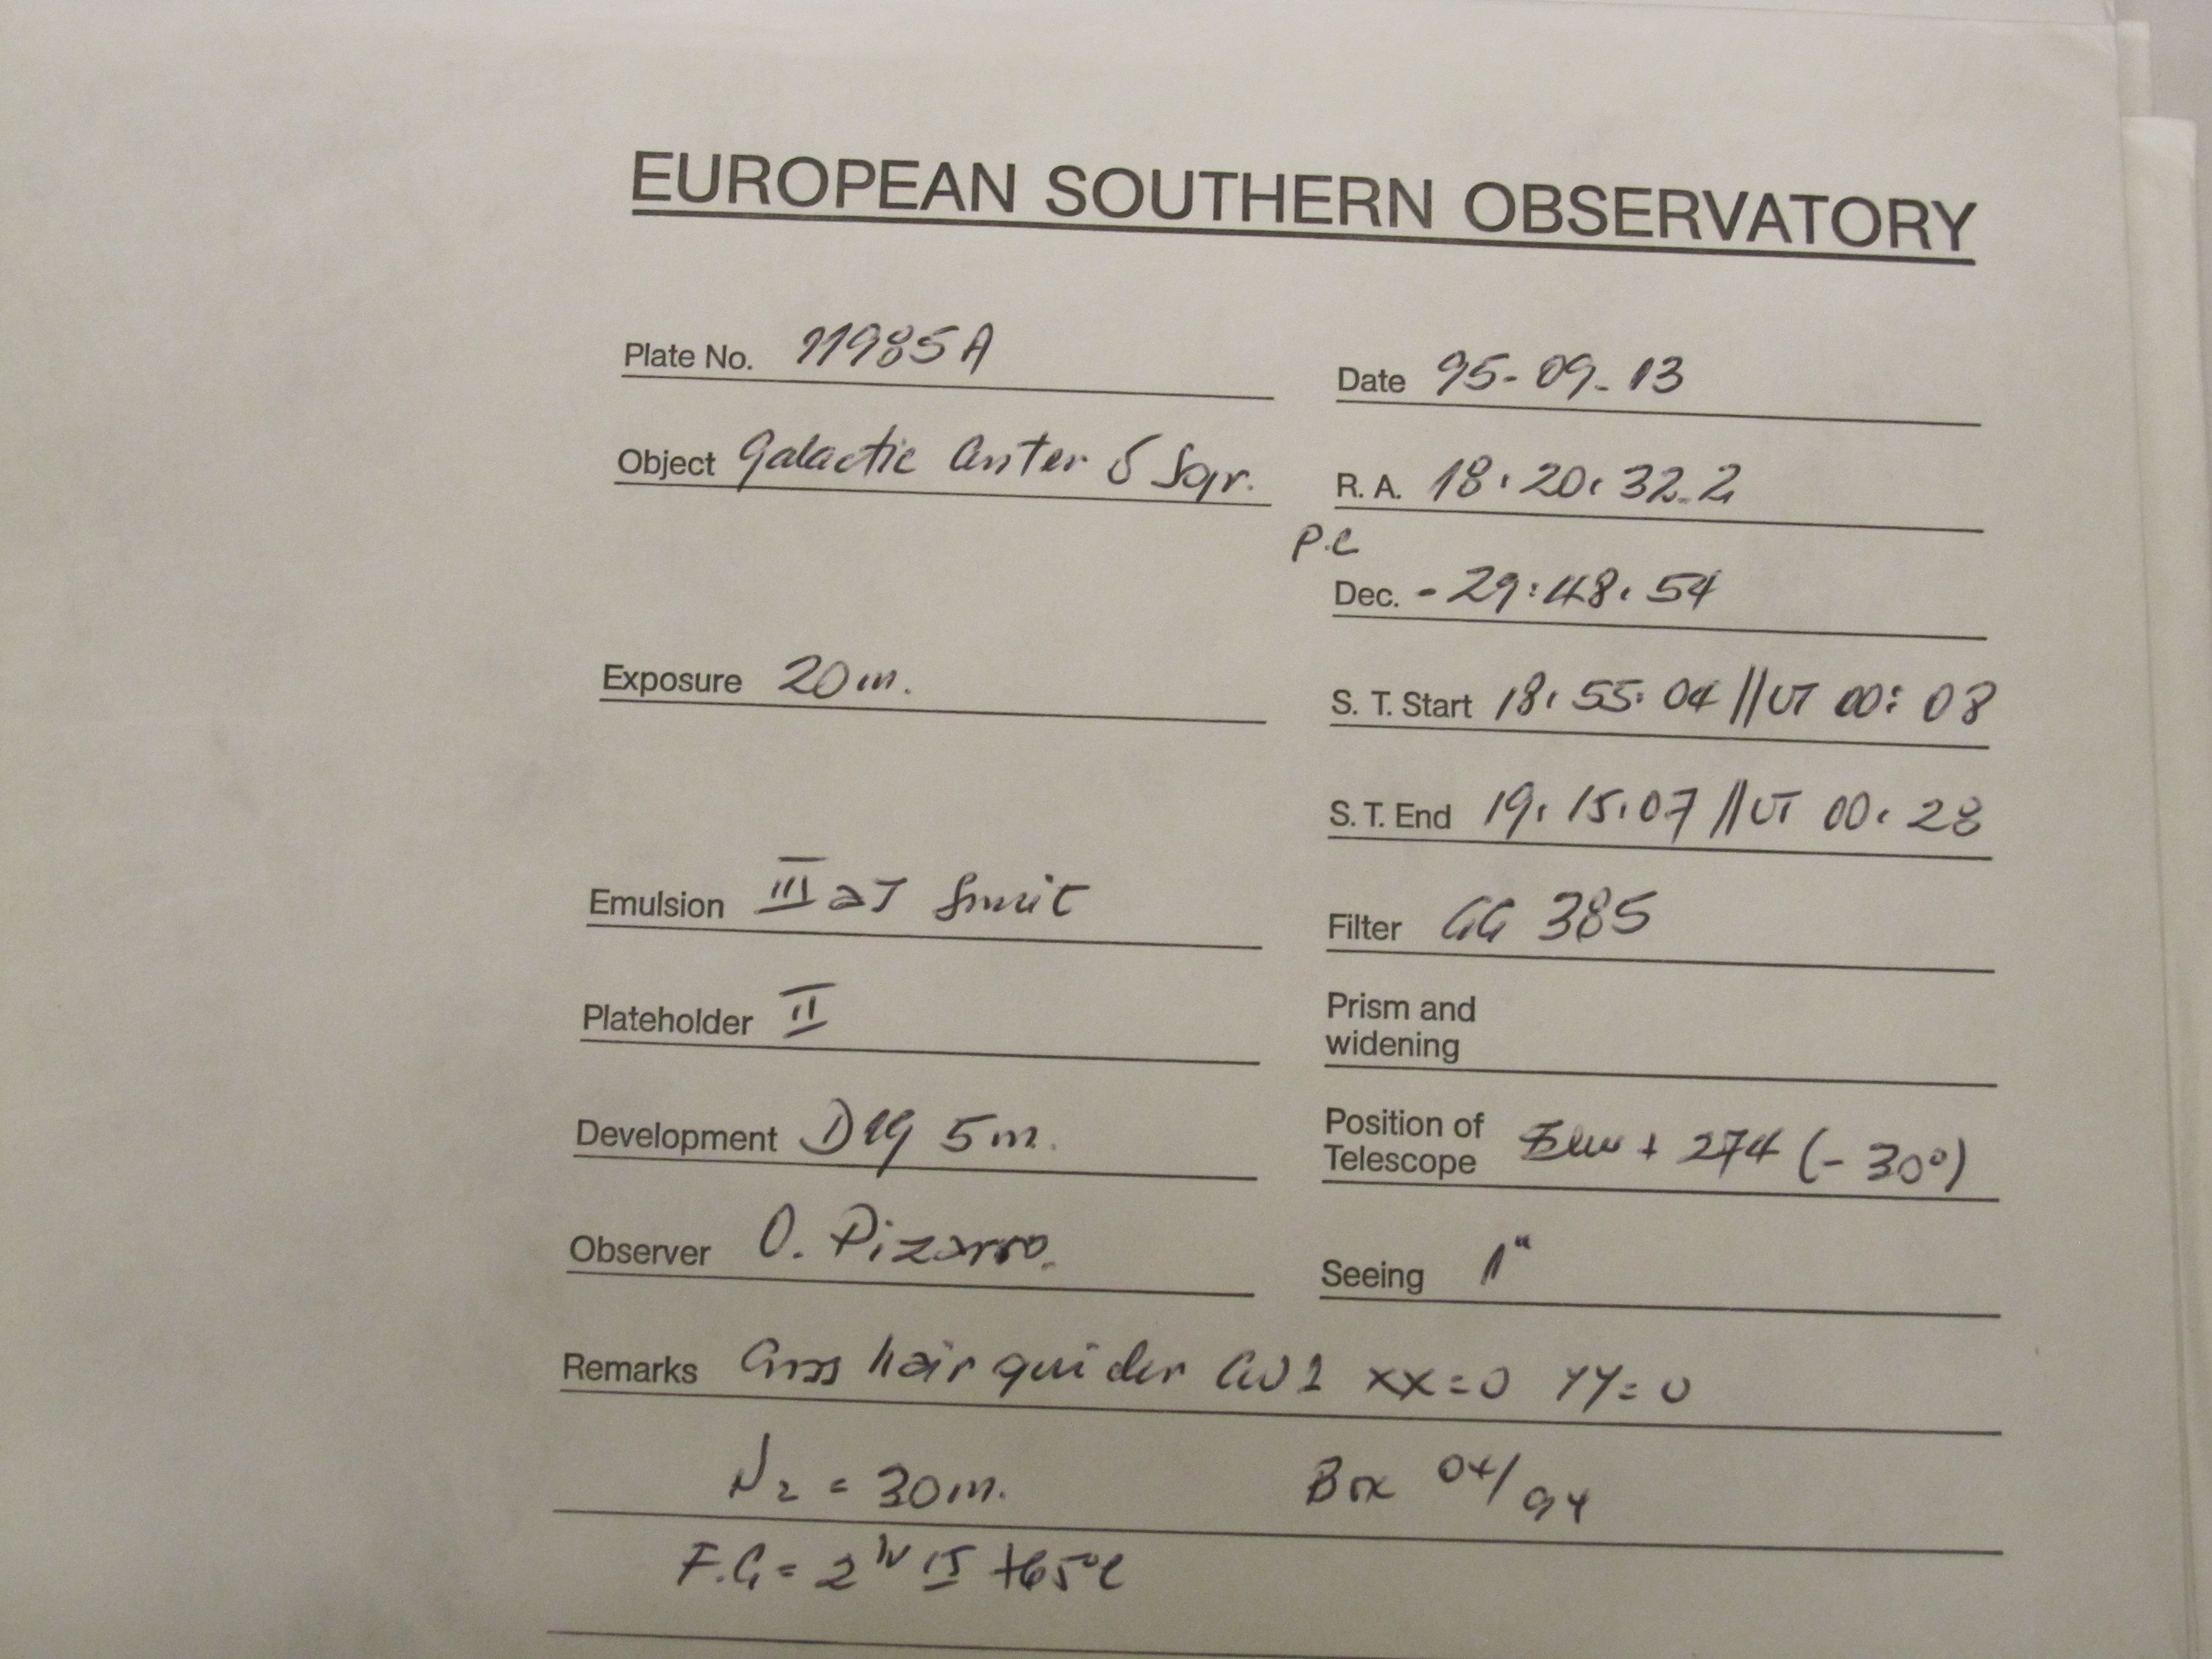 EUROPEAN SOUTHERN OBSERVATORY
Plate No. 11985A
Date 95-09-13
Object Galactic Center δ Sgr.
R. A. 18:20:32.2
P.C
Dec. -29:48:54
Exposure 20m.
S. T. Start 18:55:04 //UT 00:08
S. T. End 19:15:07 //UT 00:28
Emulsion III aJ
Filter GG 385
Plateholder II
Prism and
widening
Development D19 5m.
Position of
Telescope + 274 (-30°)
Observer O. Pizarro.
Seeing 1"
Remarks Cross hair guider XX=0 YY=0
N2 = 30m. Box 04/94
F.G = 2 +65°C